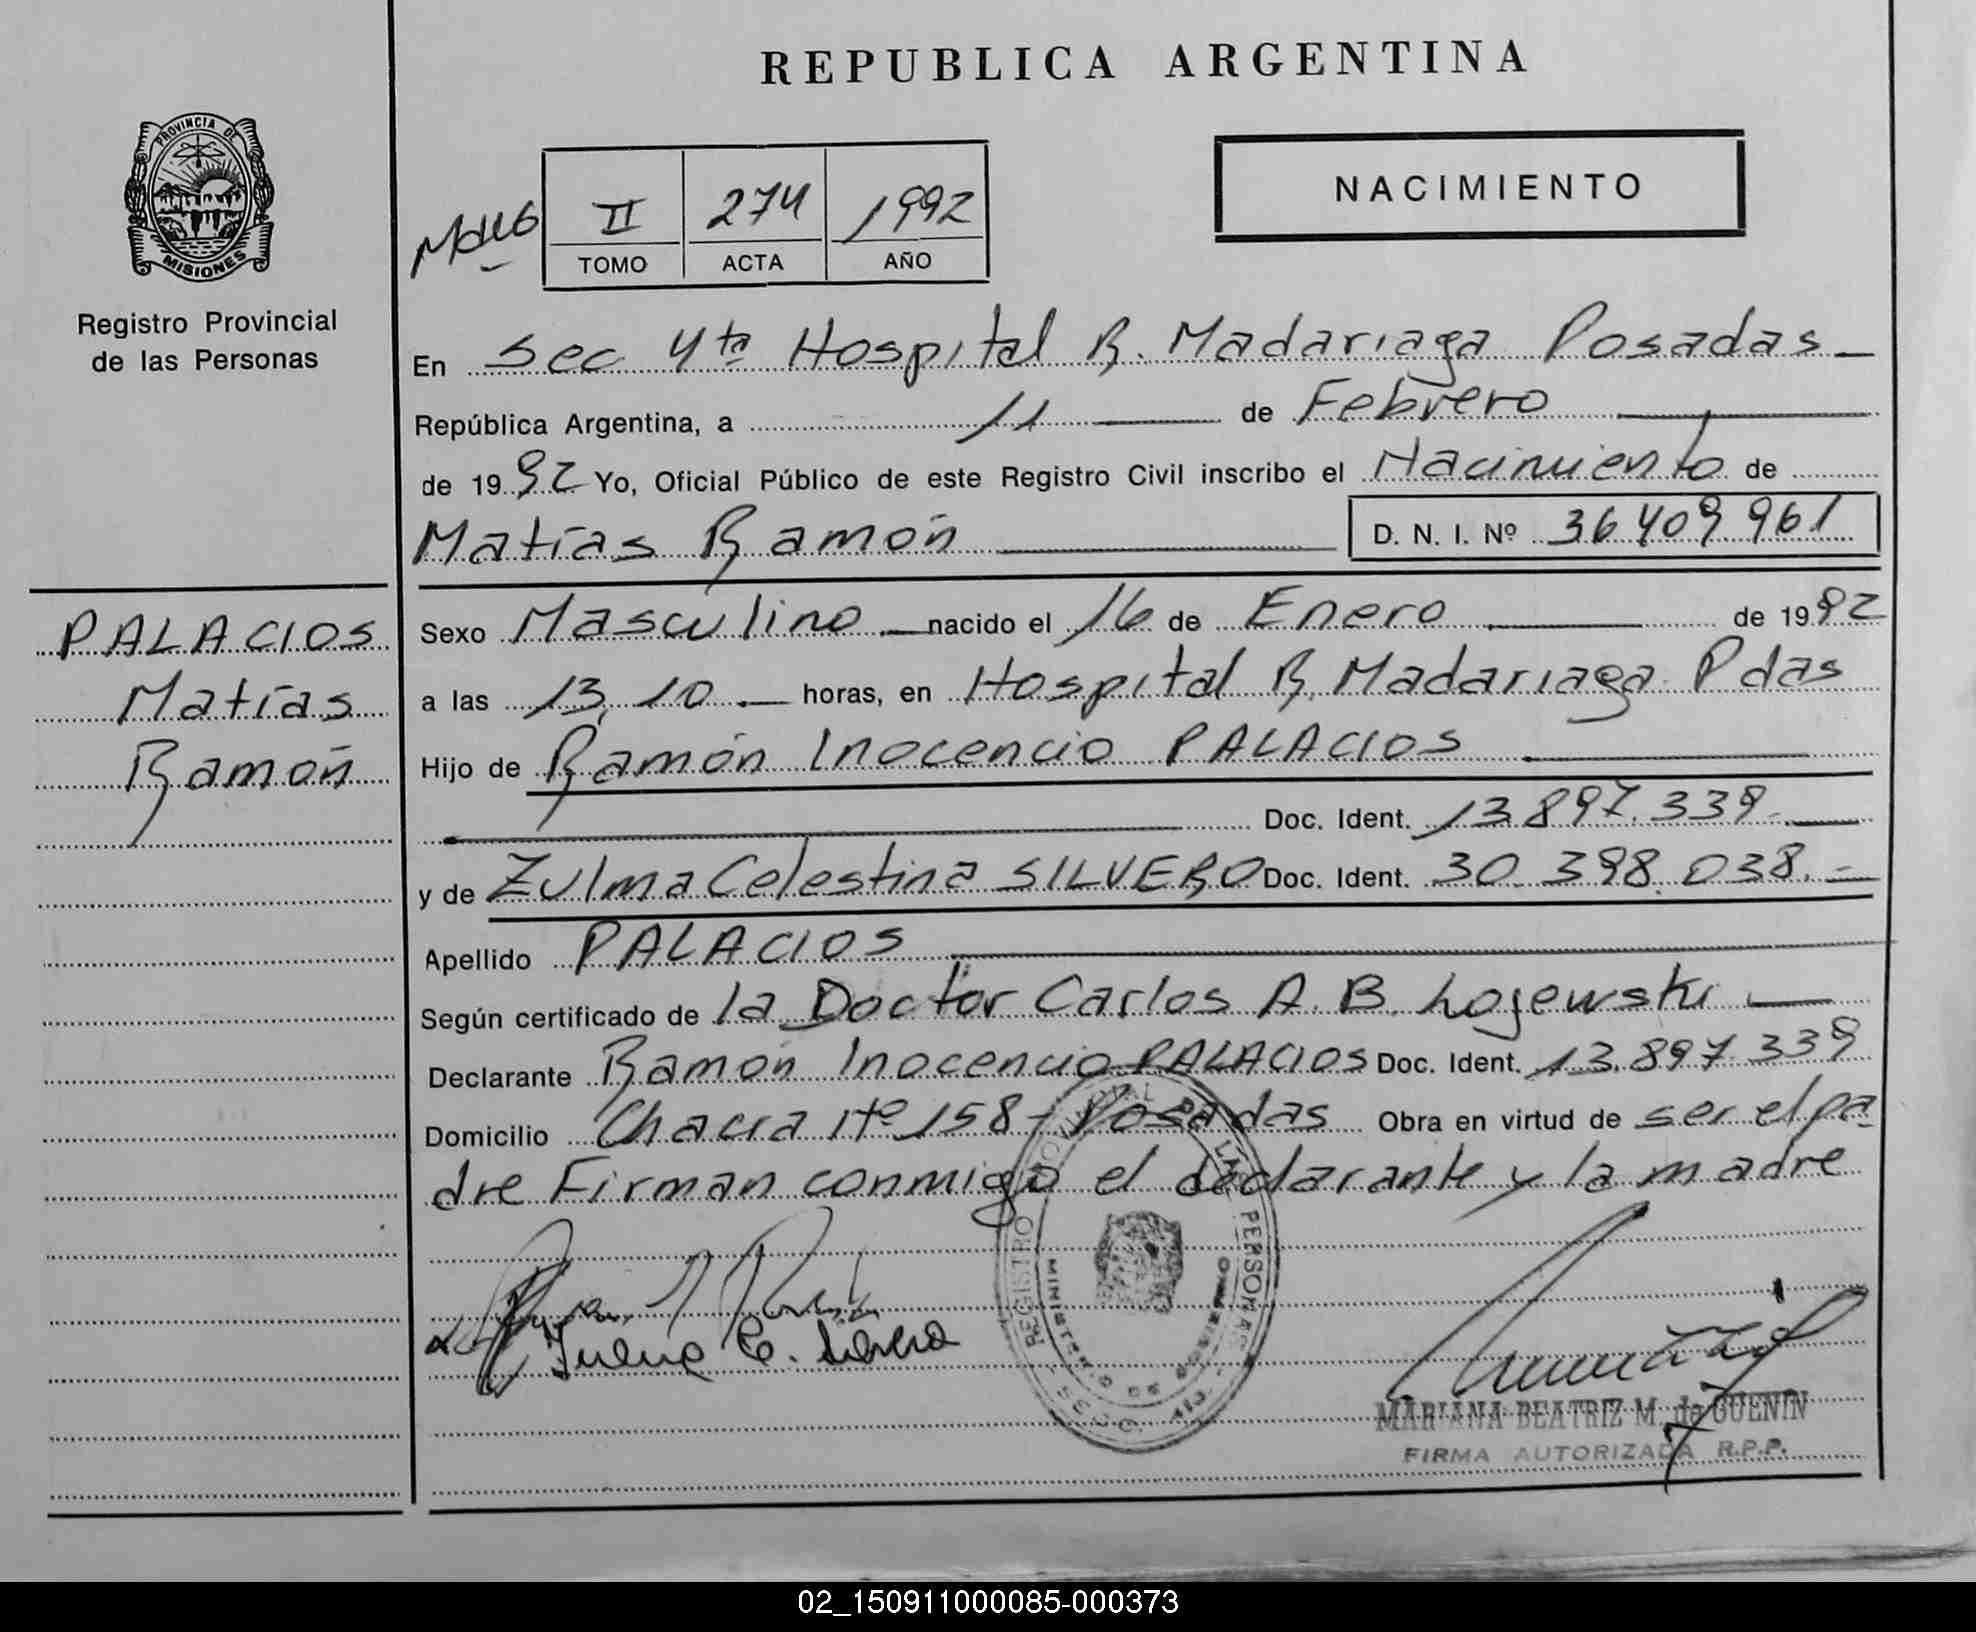 REPUBLICA ARGENTINA
PROVINCIA DE
MISIONES
Registro Provincial
de las Personas
II 274 1992
TOMO ACTA AÑO
NACIMIENTO
En Sec 4ta Hospital R. Madariaga Posadas
República Argentina, a 11 de Febrero
de 1992 Yo, Oficial Público de este Registro Civil inscribo el Nacimiento de
Matías Ramón D. N. I. Nº 36409961
PALACIOS
Matías
Ramón
Sexo Masculino nacido el 16 de Enero de 1992
a las 13,10 horas, en Hospital R. Madariaga Pdas
Hijo de Ramón Inocencio PALACIOS
Doc. Ident. 13.897.339
y de Zulma Celestina SILVERO Doc. Ident. 30.398.038.
Apellido PALACIOS
Según certificado de la Doctor Carlos A. B. Lojewski
Declarante Ramón Inocencio PALACIOS Doc. Ident. 13.897.339
Domicilio Chacra Nº 158 - Posadas Obra en virtud de ser el pa
dre Firman conmigo el declarante y la madre
MARIANA BEATRIZ M. de GUENIN
FIRMA AUTORIZADA R.P.P.
02_150911000085-000373